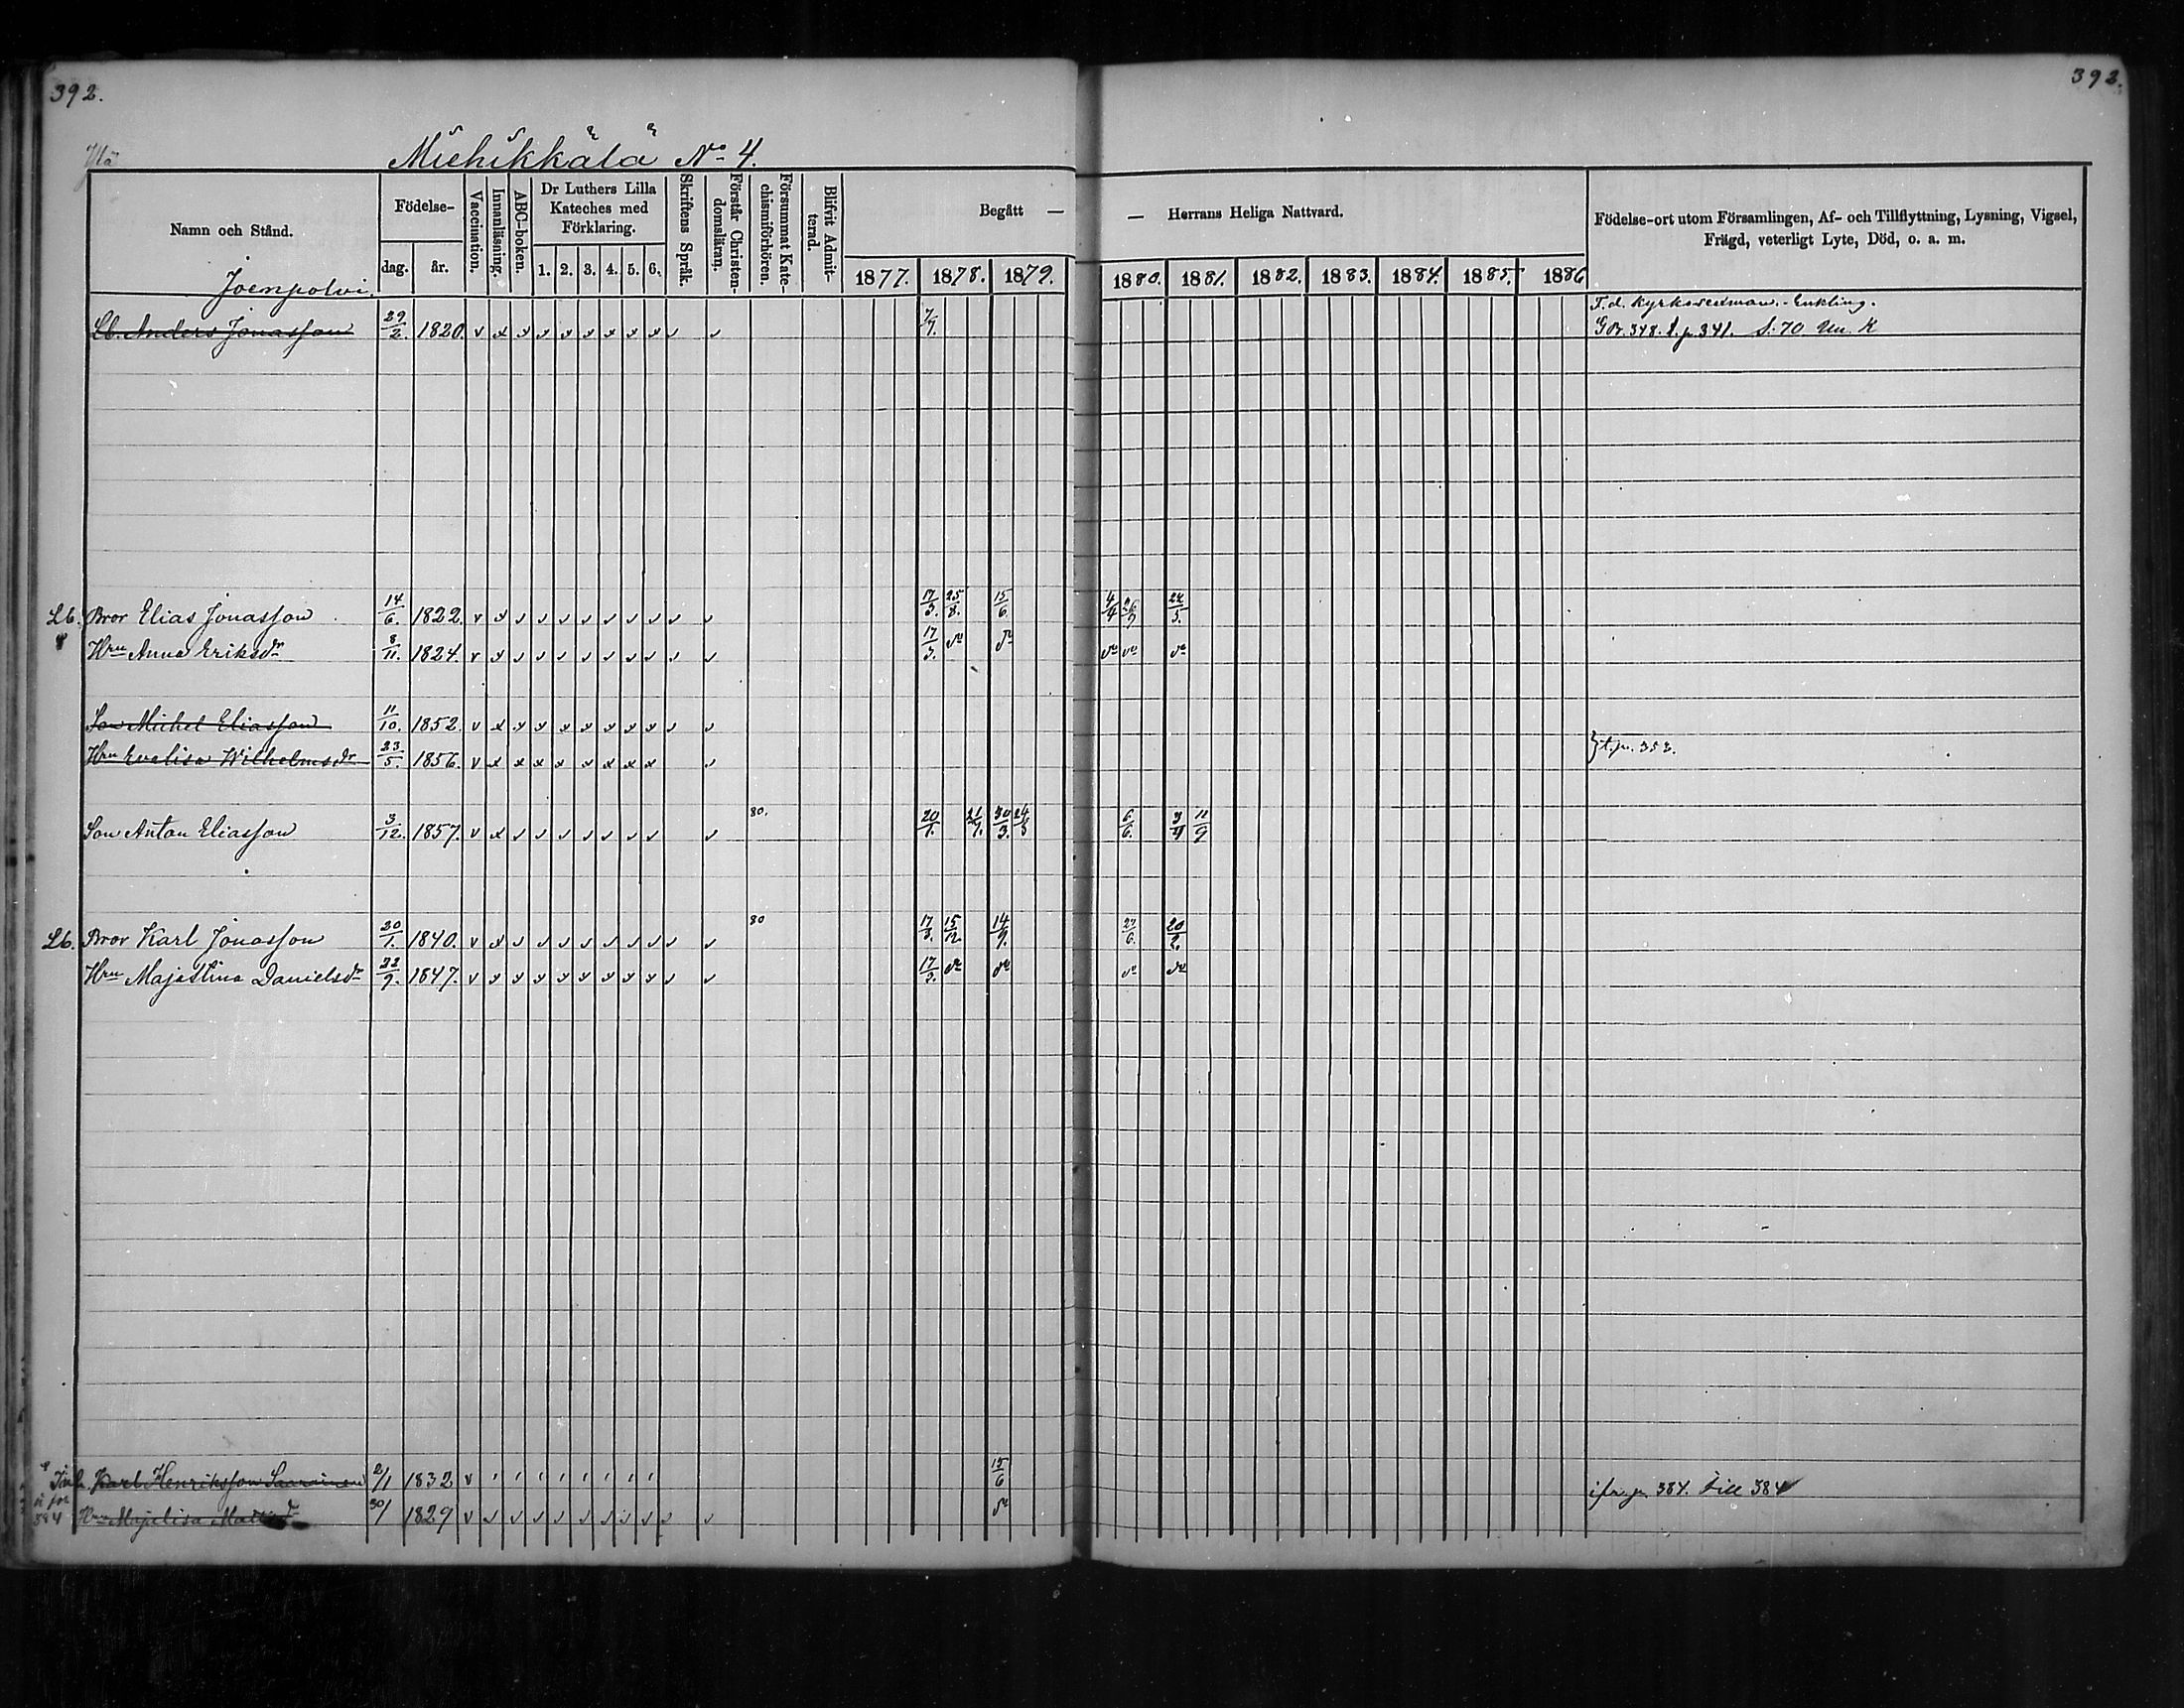 392. 392.
Ylä
Miehikkälä No 4.
Namn och Stånd. Födelse- dag. år. Vaccination. Innanläsning. ABC-boken. Dr Luthers Lilla Kateches med Förklaring. 1. 2. 3. 4. 5. 6. Skriftens Språk. Förstår Christen-domsläran. Försummat Kate-chismiförhören. Blifvit Admit-terad. Begått — — Herrans Heliga Nattvard. Födelse-ort utom Församlingen, Af- och Tillflyttning, Lysning, Vigsel, Frägd, veterligt Lyte, Död, o. a. m.
1877. 1878. 1879. 1880. 1881. 1882. 1883. 1884. 1885. 1886
Joenpolvi.
F. d. Kyrkovedman. - Enkling.
Lb. Anders Jonasson 29/2. 1820. 7/7. 348. p. 341. S. 70 Un. K
Lb. Bror Elias Jonasson 14/6. 1822. 17/3. 25/8. 15/6. 4/4 26/9 22/5.
Hru Anna Eriksdr 8/11. 1824. 17/3. do do do do do
Son Michel Eliasson 11/10. 1852.
Hru Evalisa Wilhelmsdr 23/5. 1856. t. p. 353.
Son Anton Eliasson 3/12. 1857. 80. 20/1. 21/7. 30/3. 24/8 6/6. 3/4 11/9
Lb. Bror Karl Jonasson 20/1. 1840. 80 17/3. 15/12. 14/9. 27/6. 20/2.
Hru Majastina Danielsdr 22/9. 1847. 17/3. do do do do
Inh. Karl Henriksson 2/1 1832 15/6 ifr. p. 384. till 384
384 Hru Majalisa 30/ 1829 do